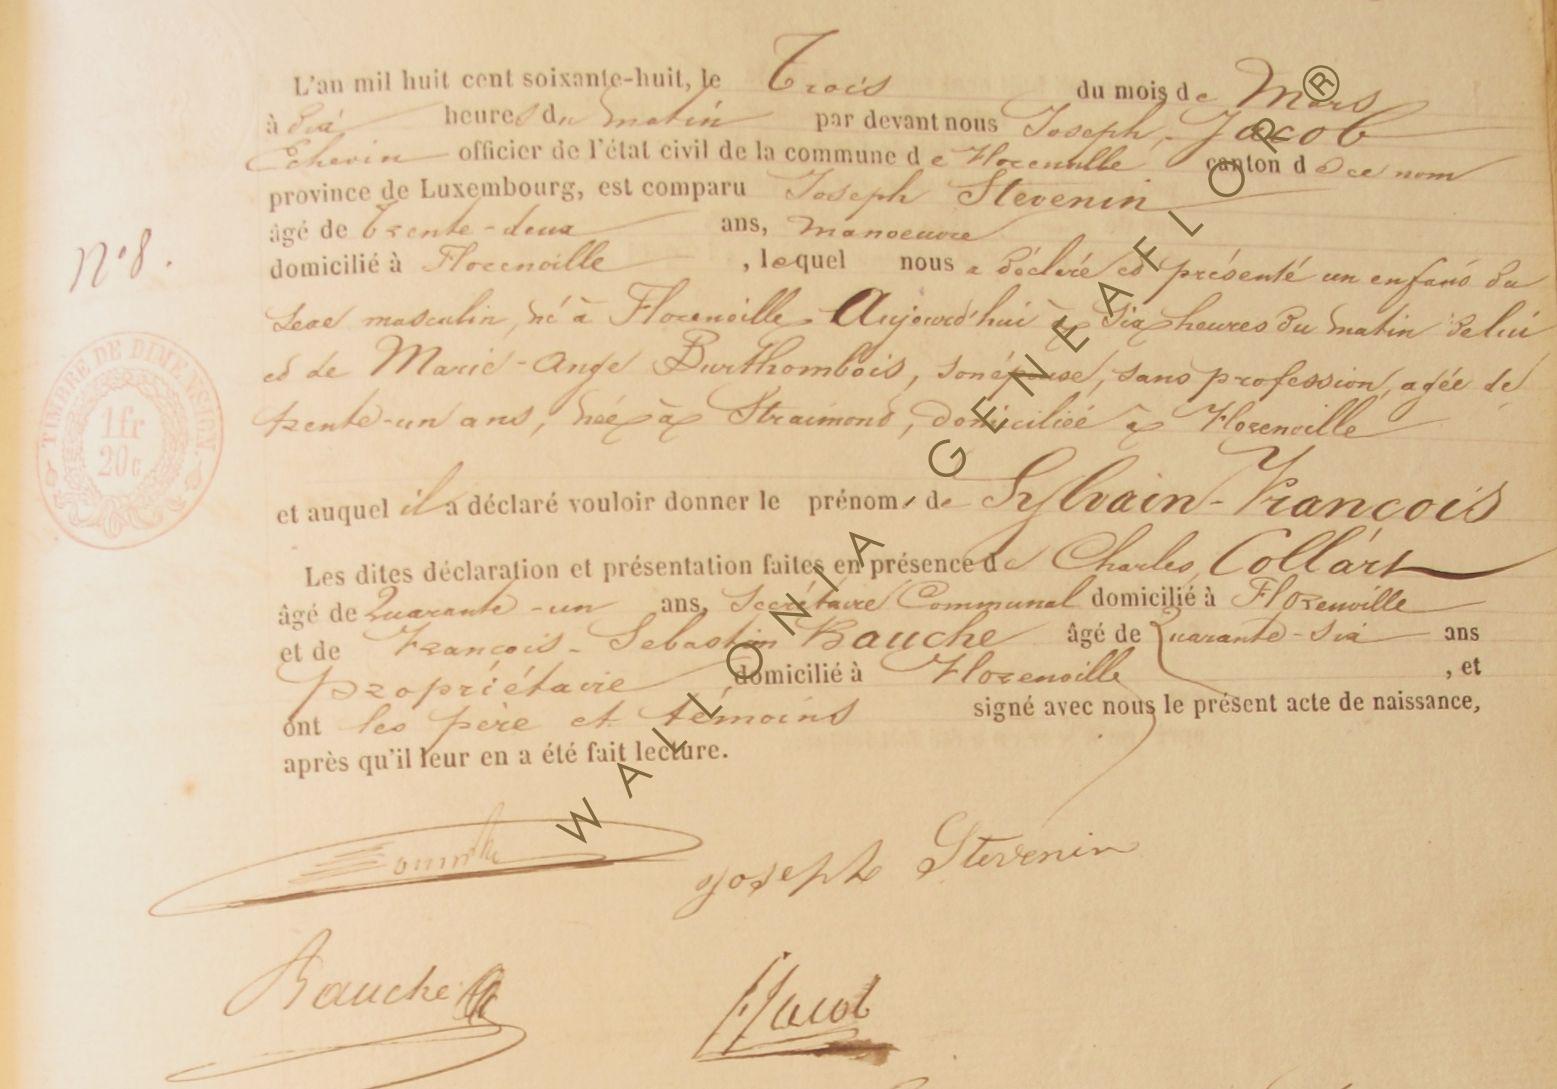 L'an mil huit cent soixante-huit, le Trois du mois de Mars
à dix heures du matin par devant nous Joseph Jacob
Echevin officier de l'état civil de la commune de Florenville canton de ce nom
province de Luxembourg, est comparu Joseph Stevenin
âgé de trente-deux ans, manoeuvre
N° 8.
domicilié à Florenville, lequel nous a déclaré et présenté un enfant du
sexe masculin, né à Florenville Aujourd'hui à six heures du matin de lui
et de Marie-Ange Burthombois, son épouse, sans profession, agée de
trente-un ans, née à Straimond, domiciliée à Florenville
TIMBRE DE DIMENSION
1 fr
20 c
et auquel il a déclaré vouloir donner le prénom de Sylvain-François
Les dites déclaration et présentation faites en présence de Charles Collart
âgé de Quarante-un ans, Secrétaire Communal domicilié à Florenville
et de François-Sebastien Bauche âgé de Quarante-six ans
propriétaire domicilié à Florenville, et
ont les père et témoins signé avec nous le présent acte de naissance,
après qu'il leur en a été fait lecture.
Joseph Stevenin
Bauche
Jacob
WALLONIA GENEAFLOR®